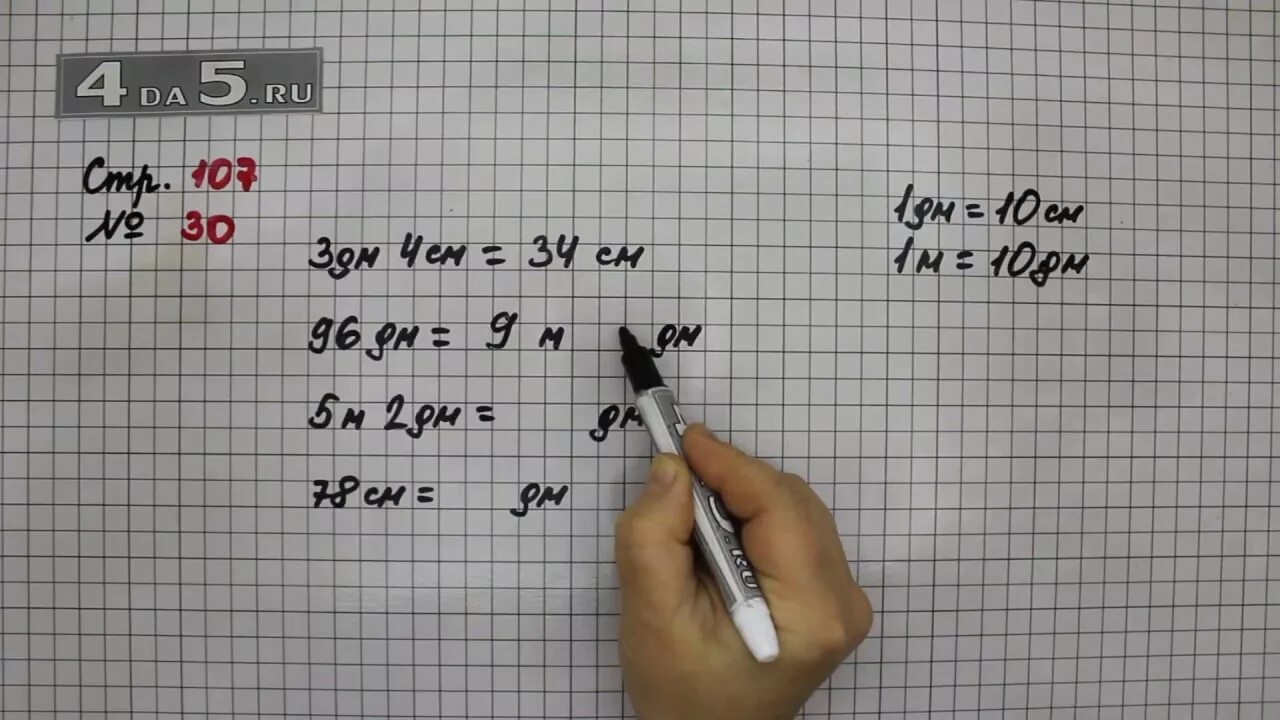 4DA5.RU
Стр. 107
№ 30
1дм = 10 см
1м = 10дм
3дм 4см = 34 см
96 дм = 9 м дм
5м 2дм = дм
78 см = дм
.RU